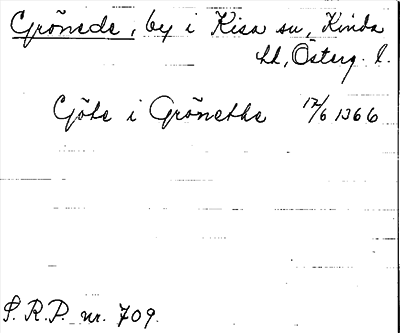 Grönede, by i Kisa sn, Kinda
hd, Österg. l.
Göte i Grönethe 12/6 1366
S.R.P. nr. 709.